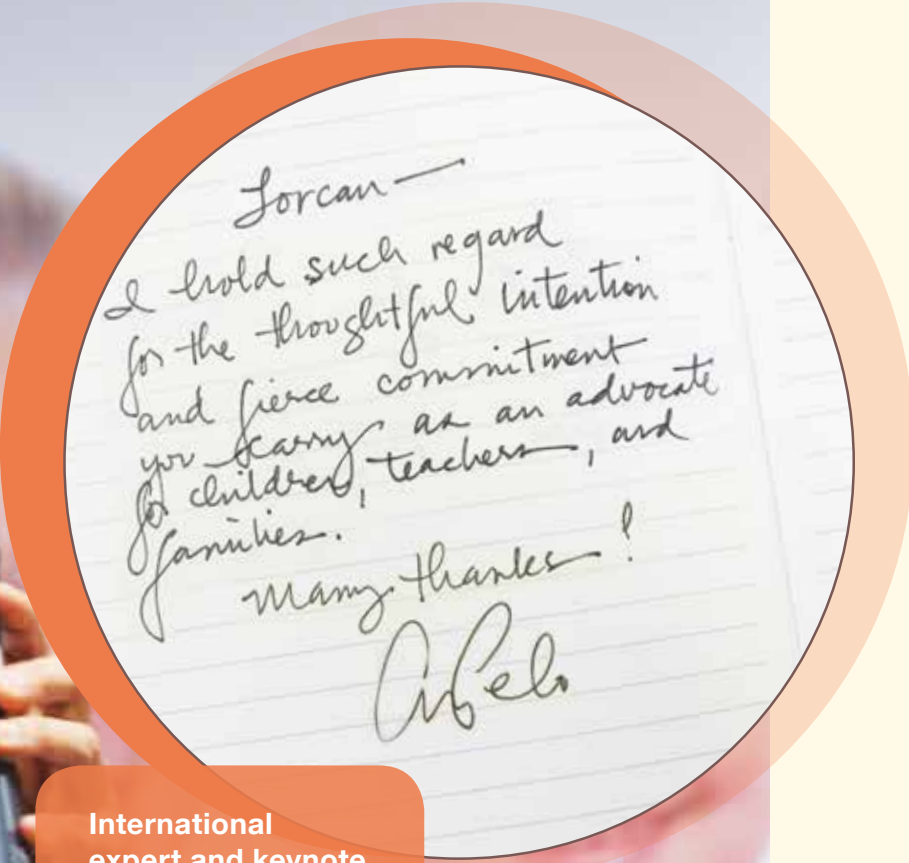 Lorcan—
I hold such regard
for the thoughtful intention
and fierce commitment
you carry as an advocate
for children, teachers, and
families.
Many thanks!
International
expert and keynote